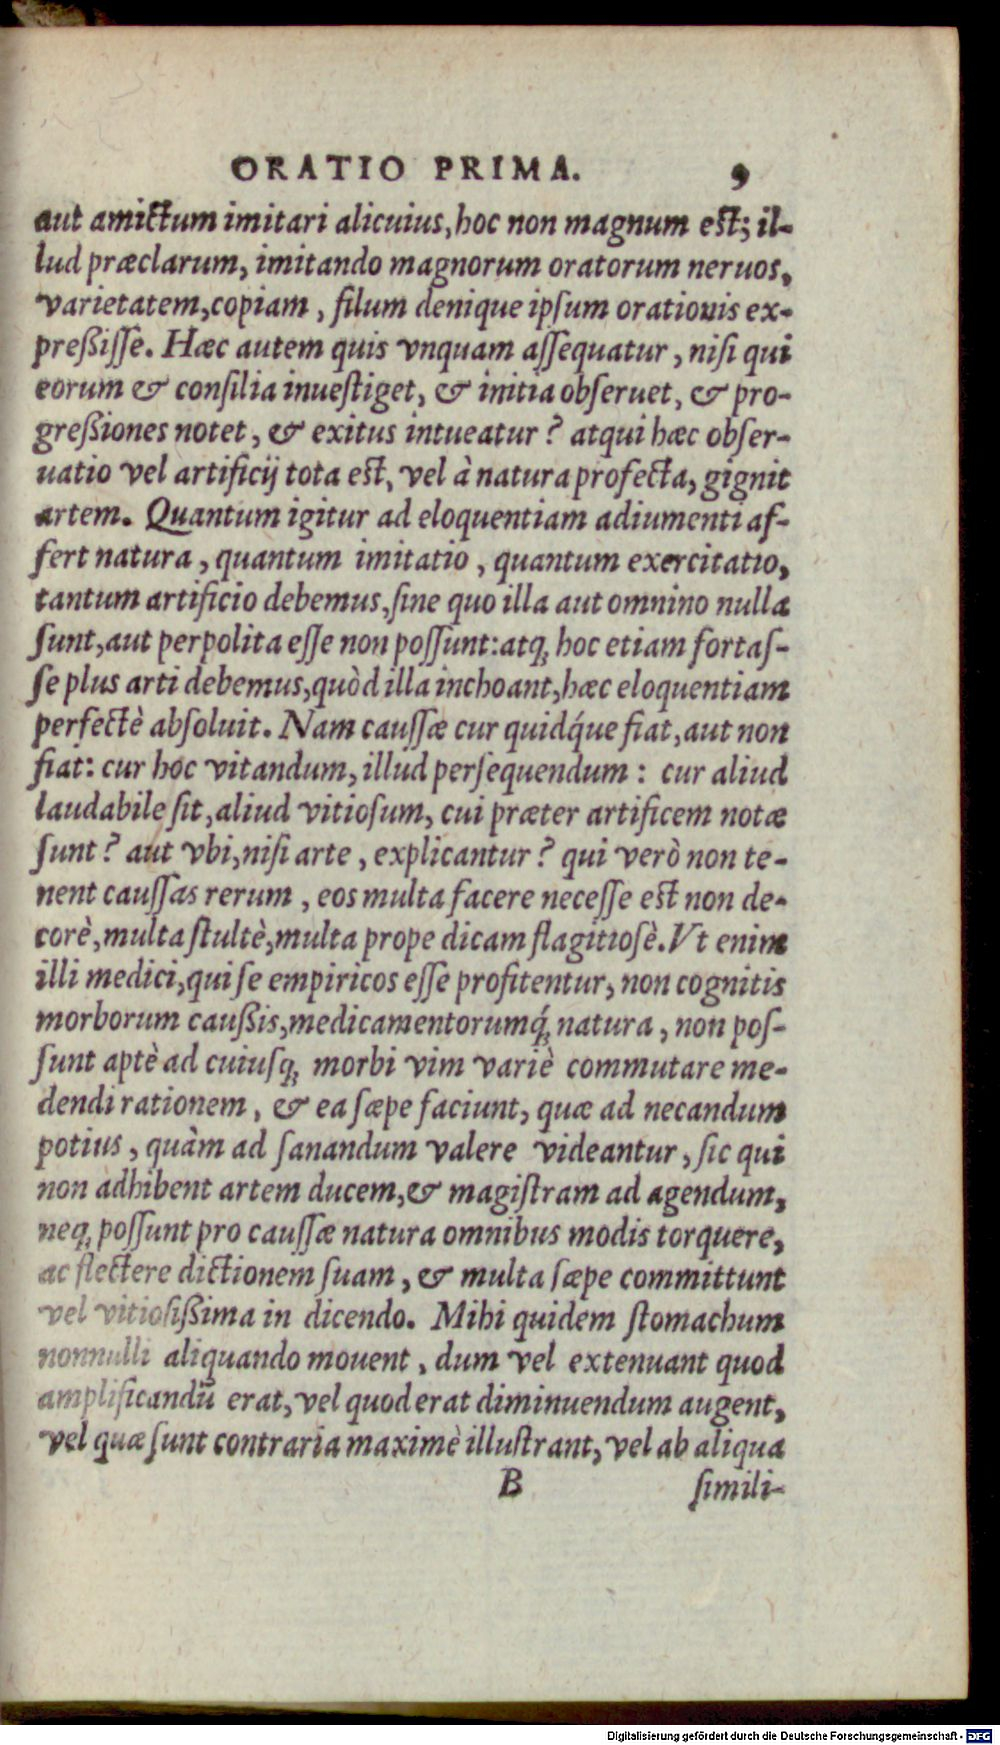 ORATIO PRIMA. 9
aut amictum imitari alicuius, hoc non magnum est; il-
lud præclarum, imitando magnorum oratorum neruos,
varietatem, copiam, filum denique ipsum orationis ex-
preßiſſe. Hæc autem quis vnquam aſſequatur, niſi qui
eorum & conſilia inueſtiget, & initia obſeruet, & pro-
greßiones notet, & exitus intueatur? atqui hæc obſer-
uatio vel artificij tota eſt, vel à natura profecta, gignit
artem. Quantum igitur ad eloquentiam adiumenti af-
fert natura, quantum imitatio, quantum exercitatio,
tantum artificio debemus, ſine quo illa aut omnino nulla
ſunt, aut perpolita eſſe non poſſunt: atq; hoc etiam fortaſ-
ſe plus arti debemus, quòd illa inchoant, hæc eloquentiam
perfectè abſoluit. Nam cauſſæ cur quidq́ue fiat, aut non
fiat: cur hoc vitandum, illud perſequendum: cur aliud
laudabile ſit, aliud vitioſum, cui præter artificem notæ
ſunt? aut vbi, niſi arte, explicantur? qui verò non te-
nent cauſſas rerum, eos multa facere neceſſe eſt non de-
corè, multa ſtultè, multa prope dicam flagitioſè. Vt enim
illi medici, qui ſe empiricos eſſe profitentur, non cognitis
morborum caußis, medicamentorumq́; natura, non poſ-
ſunt aptè ad cuiuſq; morbi vim variè commutare me-
dendi rationem, & ea ſæpe faciunt, quæ ad necandum
potius, quàm ad ſanandum valere videantur, ſic qui
non adhibent artem ducem, & magiſtram ad agendum,
neq; poſſunt pro cauſſæ natura omnibus modis torquere,
ac flectere dictionem ſuam, & multa ſæpe committunt
vel vitioſißima in dicendo. Mihi quidem ſtomachum
nonnulli aliquando mouent, dum vel extenuant quod
amplificandū erat, vel quod erat diminuendum augent,
vel quæ ſunt contraria maximè illuſtrant, vel ab aliqua
B ſimili-
Digitalisierung gefördert durch die Deutsche Forschungsgemeinschaft - DFG